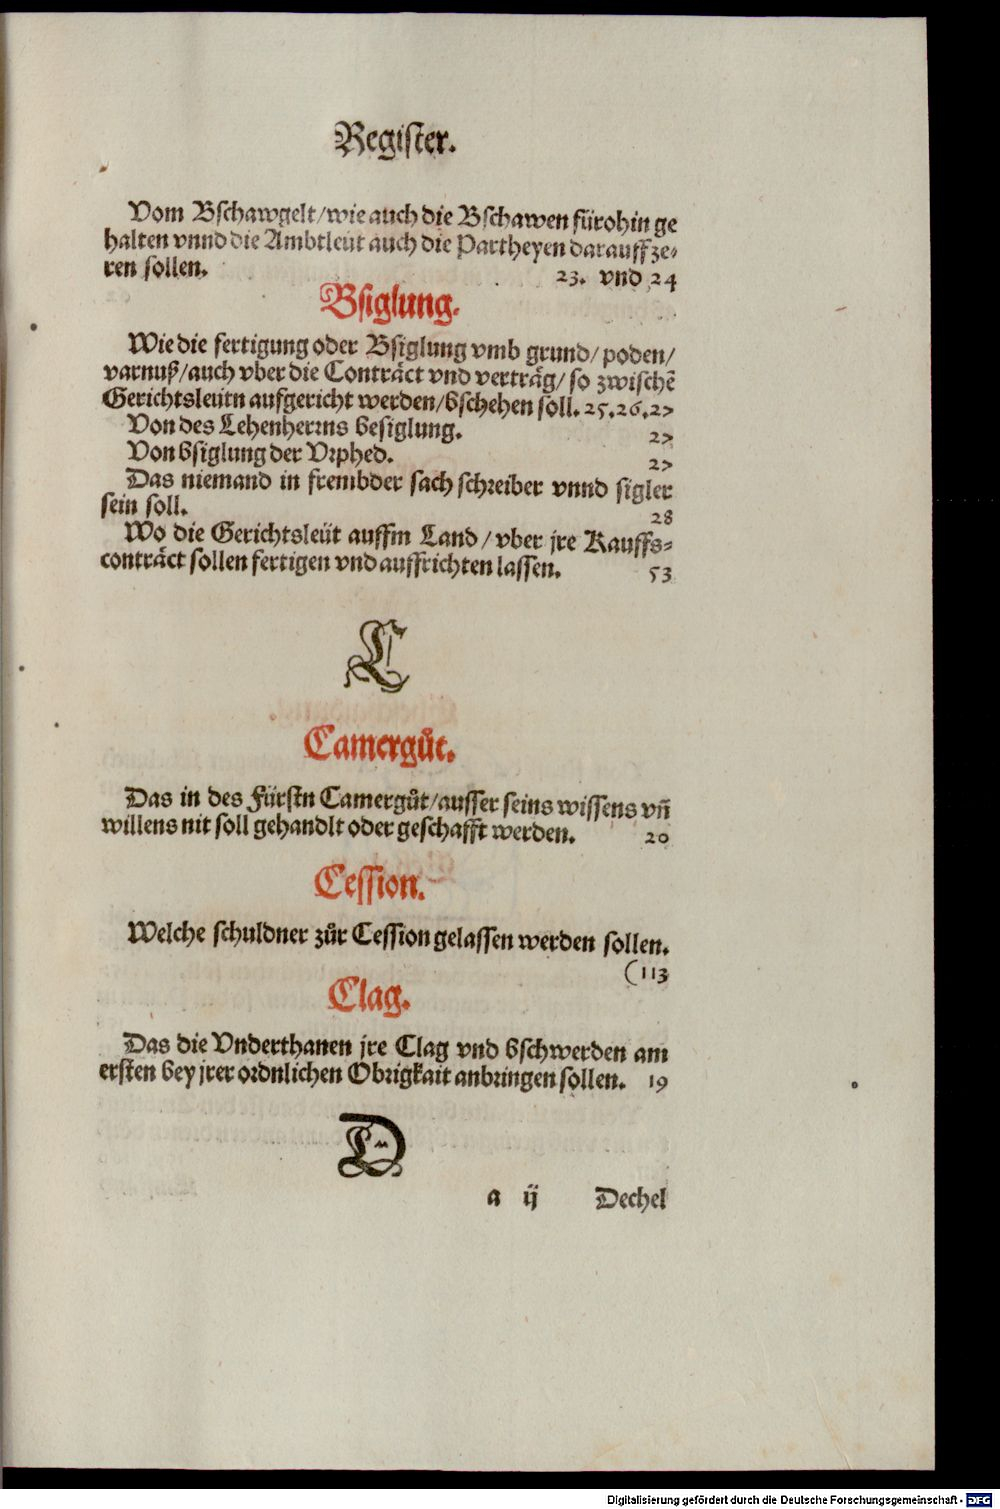 Register.
Vom Bschawgelt/wie auch die Bschawen fürohin ge
halten vnnd die Ambtleüt auch die Partheyen darauff ze-
ren sollen. 23. vnd 24
Bsiglung.
Wie die fertigung oder Bsiglung vmb grund/ poden/
varnuß/auch vber die Conträct vnd verträg/ so zwischē
Gerichtsleütn aufgericht werden/bschehen soll. 25.26.27
Von des Lehenherrns besiglung. 27
Von bsiglung der Vrphed. 27
Das niemand in frembder sach schreiber vnnd sigler
sein soll. 28
Wo die Gerichtsleüt auffm Land / vber jre Kauffs-
conträct sollen fertigen vnd auffrichten lassen. 53
C
Camergůt.
Das in des Fürstn Camergůt/ausser seins wissens vn̄
willens nit soll gehandlt oder geschafft werden. 20
Cession.
Welche schuldner zůr Cession gelassen werden sollen.
(113
Clag.
Das die Vnderthanen jre Clag vnd bschwerden am
ersten bey jrer ordnlichen Obrigkait anbringen sollen. 19
D
a ij Dechel
Digitalisierung gefördert durch die Deutsche Forschungsgemeinschaft - DFG